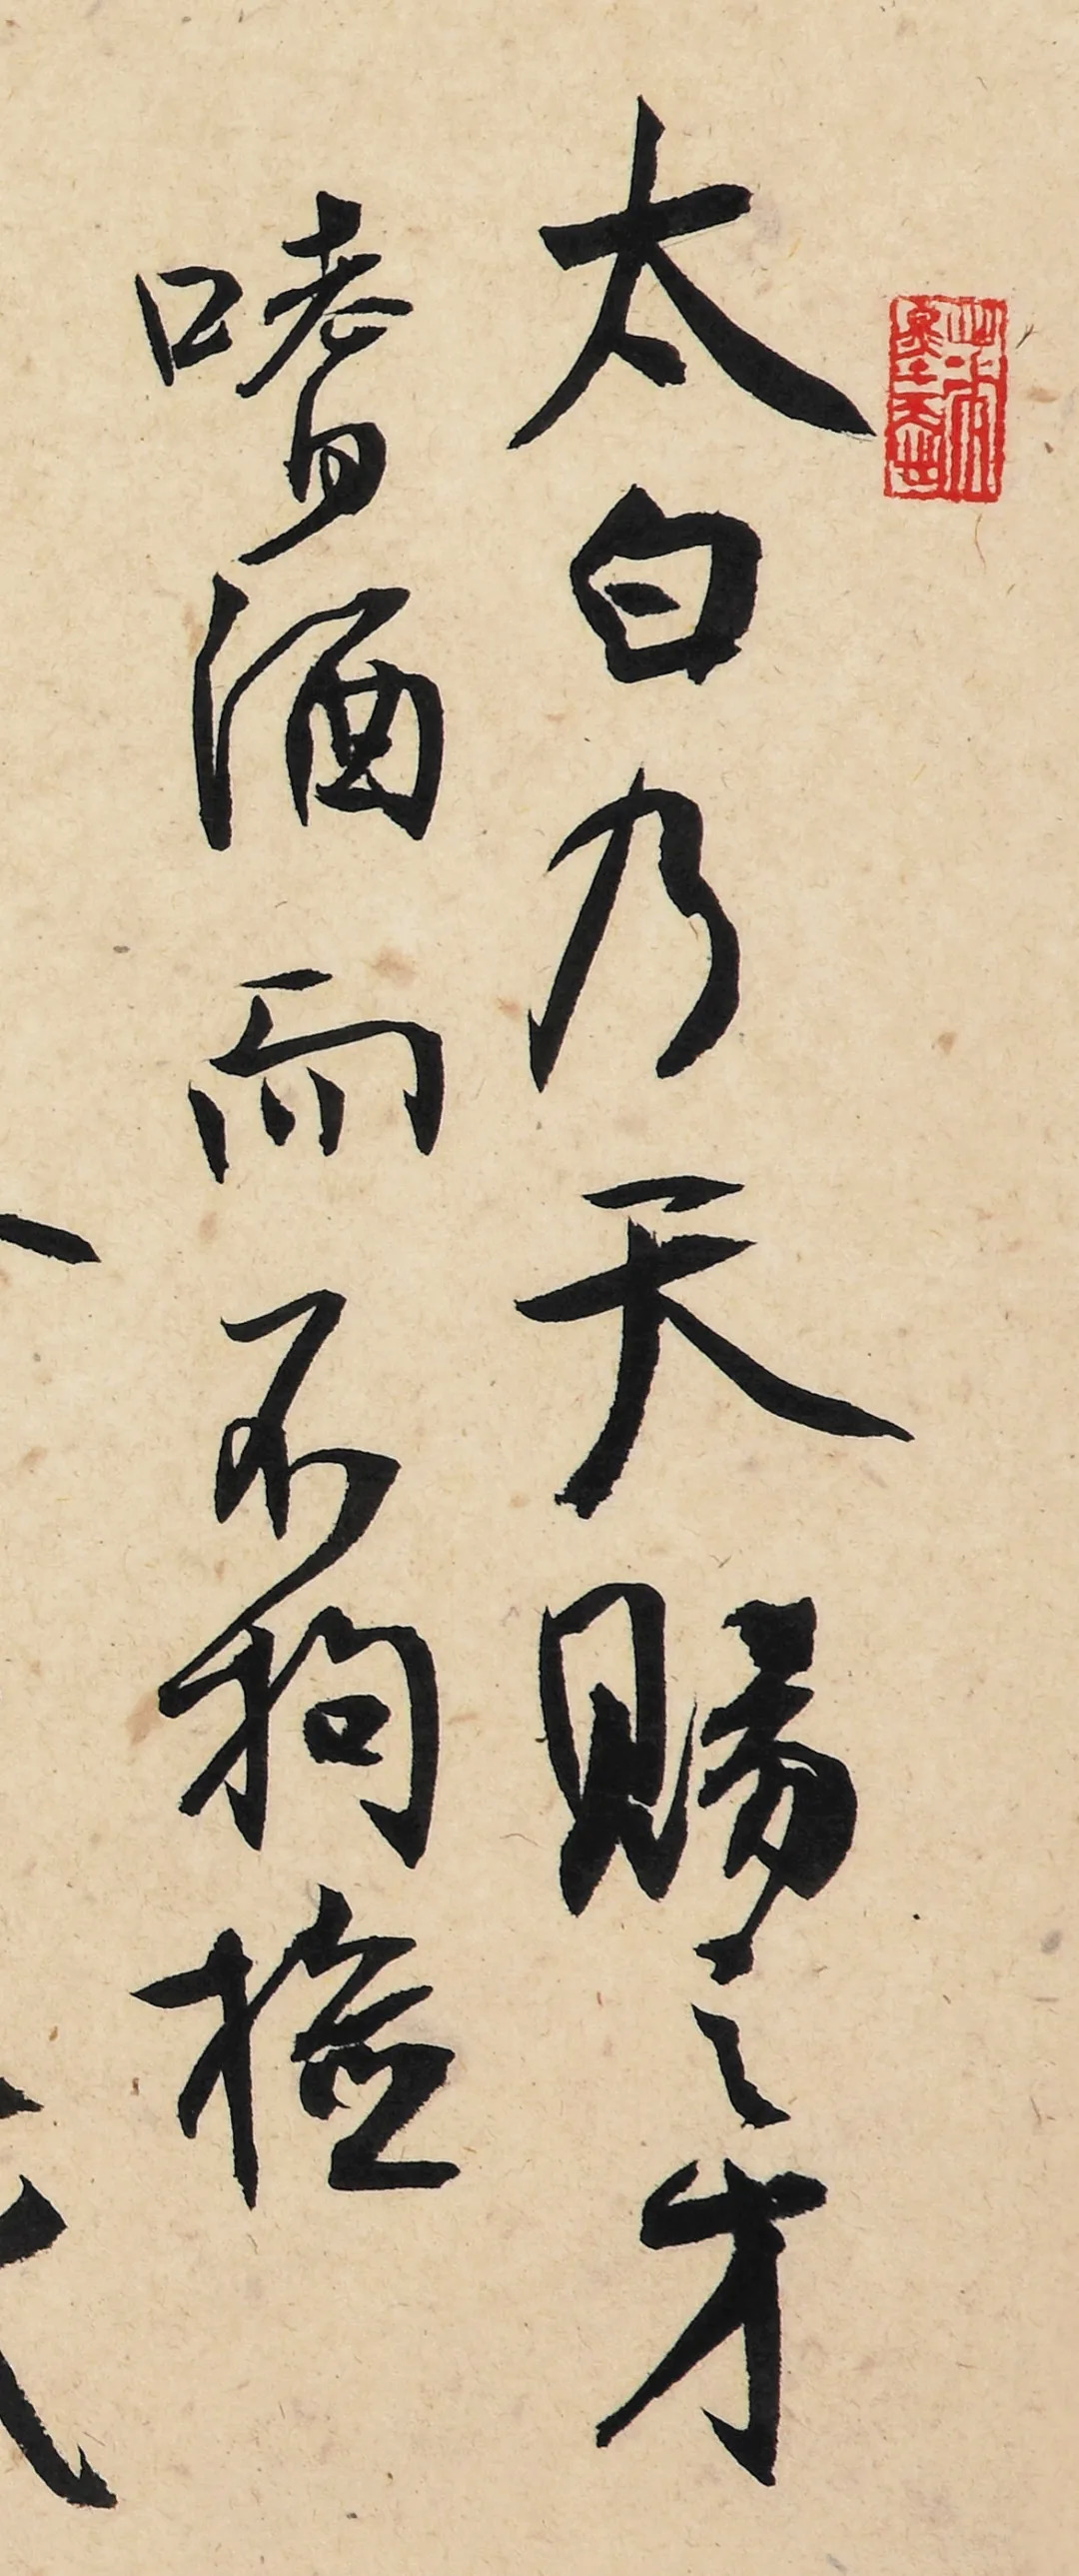 太白乃天賜之才
嗜酒而不拘檢